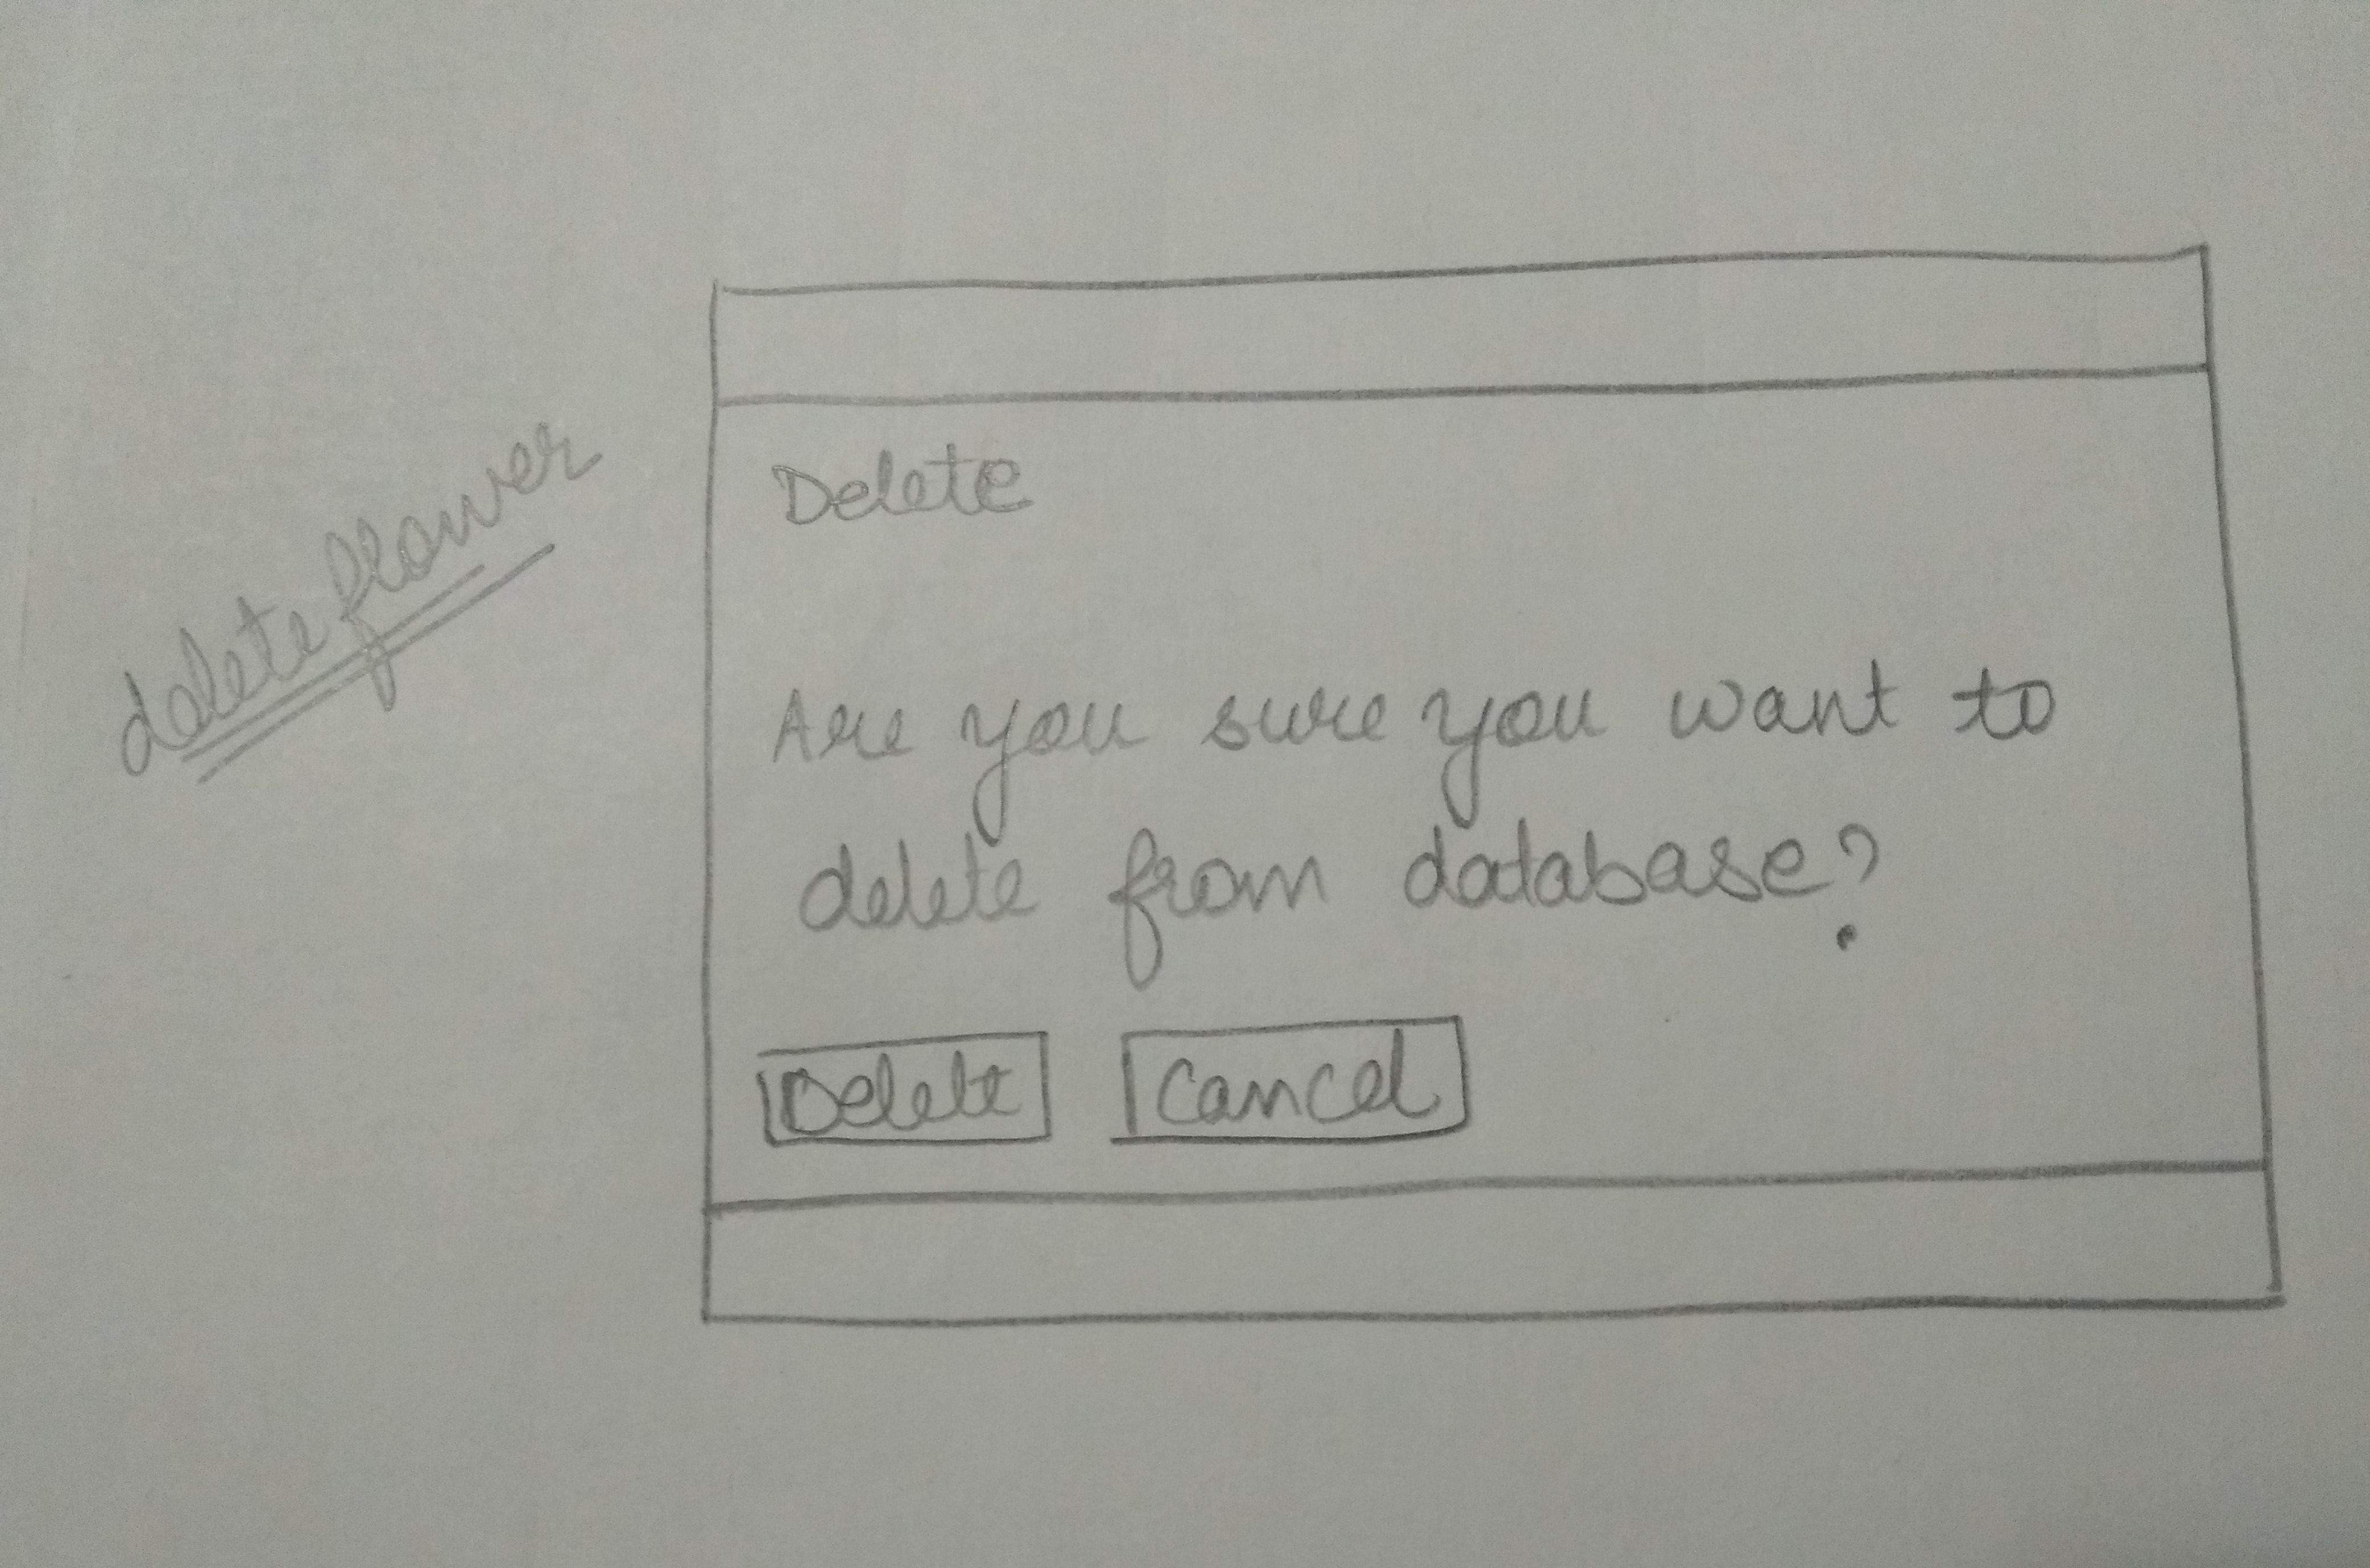 delete flower
Delete
Are you sure you want to
delete from database?
Delete
Cancel